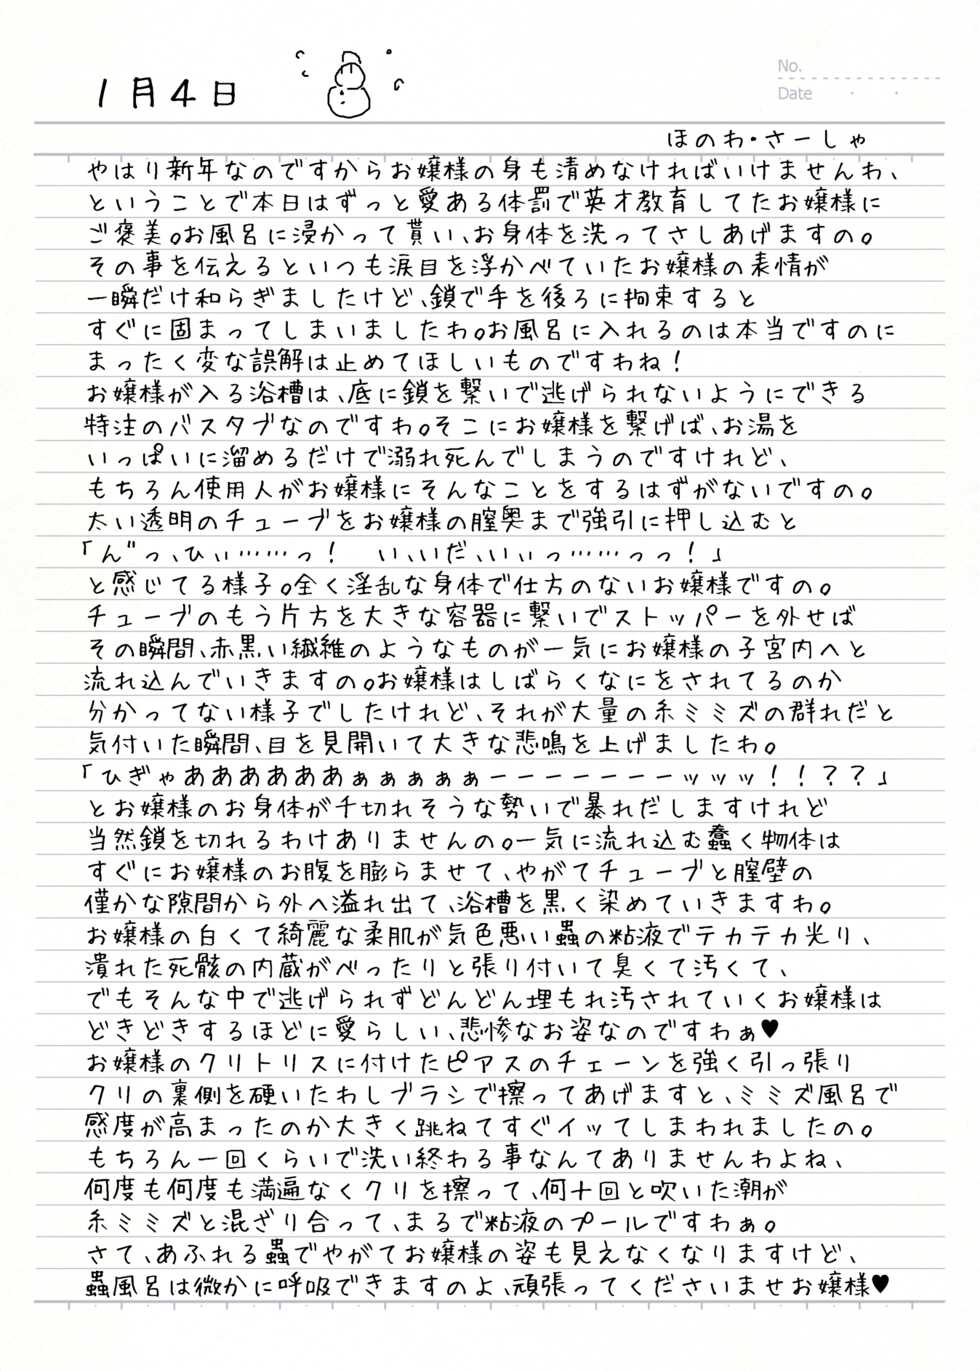 1月4日
No.
Date
ほのわ・さーしゃ
やはり新年なのですからお嬢様の身も清めなければいけませんわ、
ということで本日はずっと愛ある体罰で英才教育してたお嬢様に
ご褒美。お風呂に浸かって貰い、お身体を洗ってさしあげますの。
その事を伝えるといつも涙目を浮かべていたお嬢様の表情が
一瞬だけ和らぎましたけど、鎖で手を後ろに拘束すると
すぐに固まってしまいましたわ。お風呂に入れるのは本当ですのに
まったく変な誤解は止めてほしいものですわね！
お嬢様が入る浴槽は、底に鎖を繋いで逃げられないようにできる
特注のバスタブなのですわ。そこにお嬢様を繋げば、お湯を
いっぱいに溜めるだけで溺れ死んでしまうのですけれど、
もちろん使用人がお嬢様にそんなことをするはずがないですの。
太い透明のチューブをお嬢様の膣奥まで強引に押し込むと
「ん゛っ、ひぃ……っ！　い、いだ、いぃっ……っっ！」
と感じてる様子。全く淫乱な身体で仕方のないお嬢様ですの。
チューブのもう片方を大きな容器に繋いでストッパーを外せば
その瞬間、赤黒い繊維のようなものが一気にお嬢様の子宮内へと
流れ込んでいきますの。お嬢様はしばらくなにをされてるのか
分かってない様子でしたけれど、それが大量の糸ミミズの群れだと
気付いた瞬間、目を見開いて大きな悲鳴を上げましたわ。
「ひぎゃあああああああぁぁぁぁぁーーーーーーーッッッ！！？？」
とお嬢様のお身体が千切れそうな勢いで暴れだしますけれど
当然鎖を切れるわけありませんの。一気に流れ込む蠢く物体は
すぐにお嬢様のお腹を膨らませて、やがてチューブと膣壁の
僅かな隙間から外へ溢れ出て、浴槽を黒く染めていきますわ。
お嬢様の白くて綺麗な柔肌が気色悪い蟲の粘液でテカテカ光り、
潰れた死骸の内蔵がべったりと張り付いて臭くて汚くて、
でもそんな中で逃げられずどんどん埋もれ汚されていくお嬢様は
どきどきするほどに愛らしい、悲惨なお姿なのですわぁ♥
お嬢様のクリトリスに付けたピアスのチェーンを強く引っ張り
クリの裏側を硬いたわしブラシで擦ってあげますと、ミミズ風呂で
感度が高まったのか大きく跳ねてすぐイッてしまわれましたの。
もちろん一回くらいで洗い終わる事なんてありませんわよね、
何度も何度も満遍なくクリを擦って、何十回と吹いた潮が
糸ミミズと混ざり合って、まるで粘液のプールですわぁ。
さて、あふれる蟲でやがてお嬢様の姿も見えなくなりますけど、
蟲風呂は微かに呼吸できますのよ、頑張ってくださいませお嬢様♥